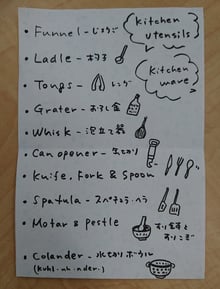 Kitchen
utensils
Kitchen
ware
• Funnel - じょうご
• Ladle - 杓子
• Tongs - トング
• Grater - おろし金
• Whisk - 泡立て器
• Can opener - 缶切り
• Knife, Fork & Spoon
• Spatula - スパチュラ・ヘラ
• Motar & pestle
すり鉢と
すりこぎ
• Colander - 水切りボウル